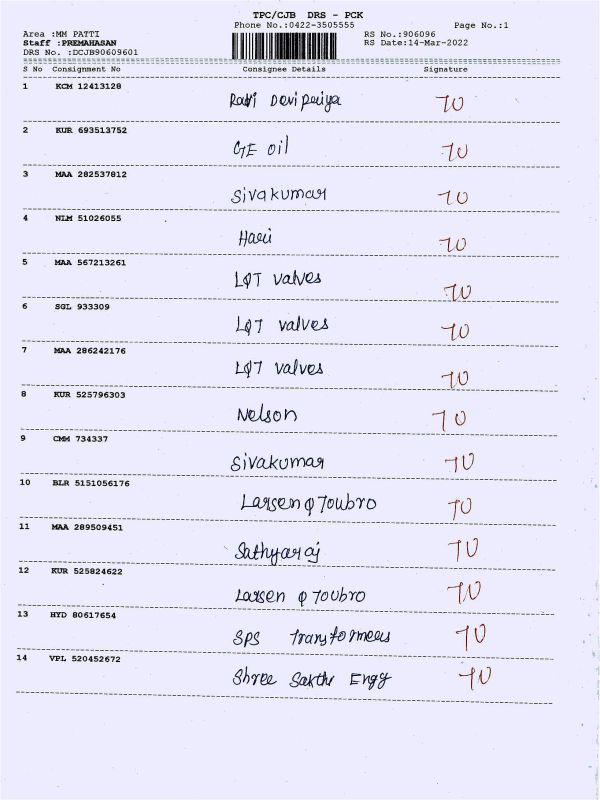 TPC/CJB DRS - PCK
Phone No.:0422-3505555 Page No.:1
Area :MM PATTI RS No.:906096
Staff :PREMAHASAN RS Date:14-Mar-2022
DRS No. :DCJB90609601
S No Consignment No Consignee Details Signature
1 KCM 12413128
Devipriya TU
2 KUR 693513752
GE oil TU
3 MAA 282537812
Sivakumar TU
4 NLM 51026055
Hari TU
5 MAA 567213261
L&T valves TU
6 SGL 933309
L&T valves TU
7 MAA 286242176
L&T valves TU
8 KUR 525796303
Nelson TU
9 CMM 734337
Sivakumar TU
10 BLR 5151056176
Larsen & Toubro TU
11 MAA 289509451
Sathyaraj TU
12 KUR 525824622
Larsen & Toubro TU
13 HYD 80617654
SPS Transformers TU
14 VPL 520452672
Shree Sakthi Engg TU